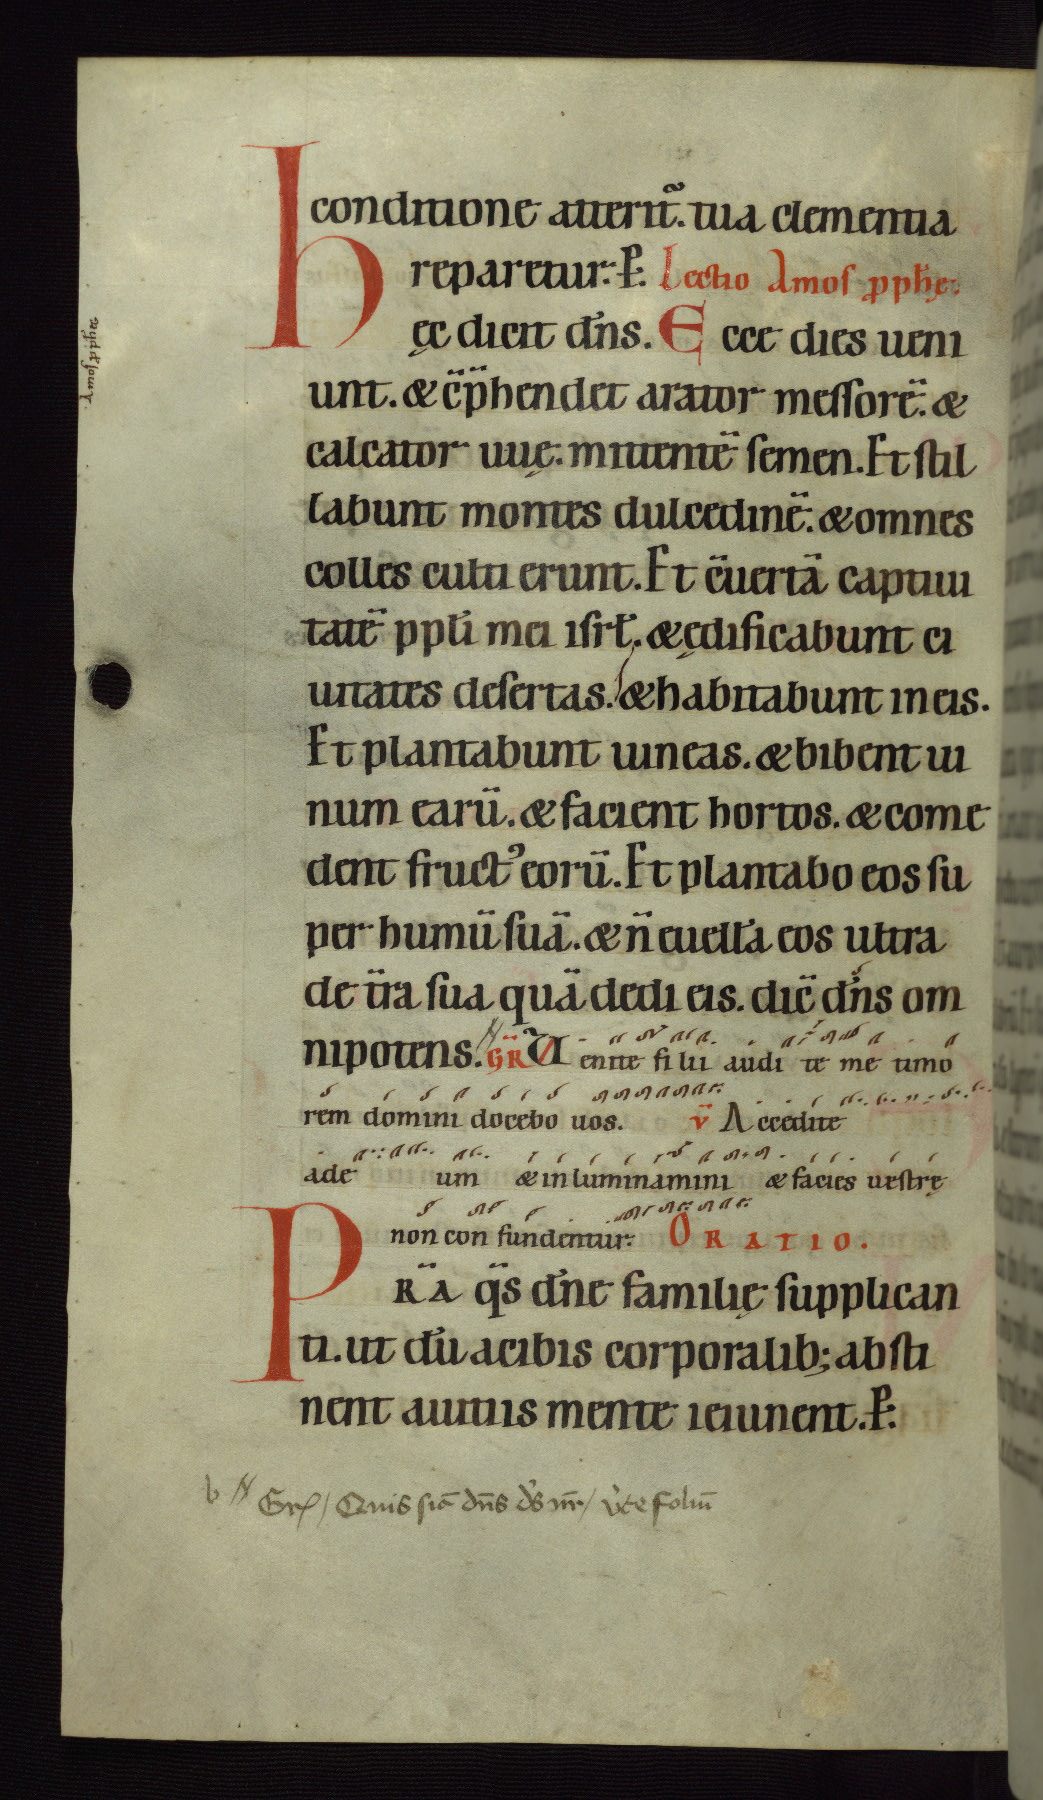 conditione atterit᷑. tua clementia
reparetur. P̄: Lectio Amos ꝓph̄ę.
Hęc dicit dn̄s. Ecce dies ueni
unt. & c̄p̄hendet arator messorē. &
calcator uuę. mittentē semen. Et stil
labunt montes dulcedinē. & omnes
colles culti erunt. Et c̄uertā captiui
tatē ppl̄i mei isrl̄. & ędificabunt ci
uitates desertas. & habitabunt in eis.
Et plantabunt uineas. & bibent ui
num earū. & facient hortos. & come
dent fruct᾽ eorū. Et plantabo eos su
per humū suā. & n̄ euellā eos ultra
de t̄ra sua quā dedi eis. dic̄ dn̄s om
nipotens. GR̄ Uenite filii audi te me timo
rem domini docebo uos. v̄ Accedite
ade um & inluminamini & facies uestrę
non con fundentur. ORATIO.
PR̄A qs̄ dn̄e familię supplican
ti. ut dū a cibis corporalib; absti
nent a uitiis mente ieiunent. P̄:
Gr̄ / Quis sic̄ dn̄s ds̄ nr̄ / v̄te foliū